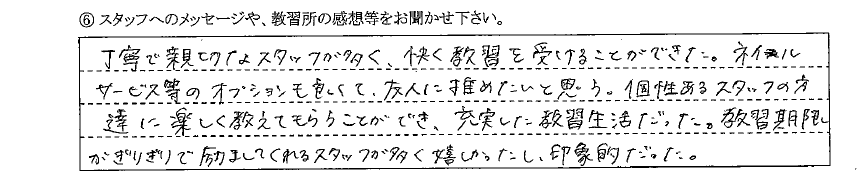 ⑥ スタッフへのメッセージや、教習所の感想等をお聞かせ下さい。
丁寧で親切なスタッフが多く、快く教習を受けることができた。ネイル
サービス等のオプションも色々て、友人に推めたいと思う。個性あるスタッフの方
達に楽しく教えてもらうことができ、充実した教習生活だった。教習期限
がぎりぎりで励ましてくれるスタッフが多く嬉しかったし、印象的だった。